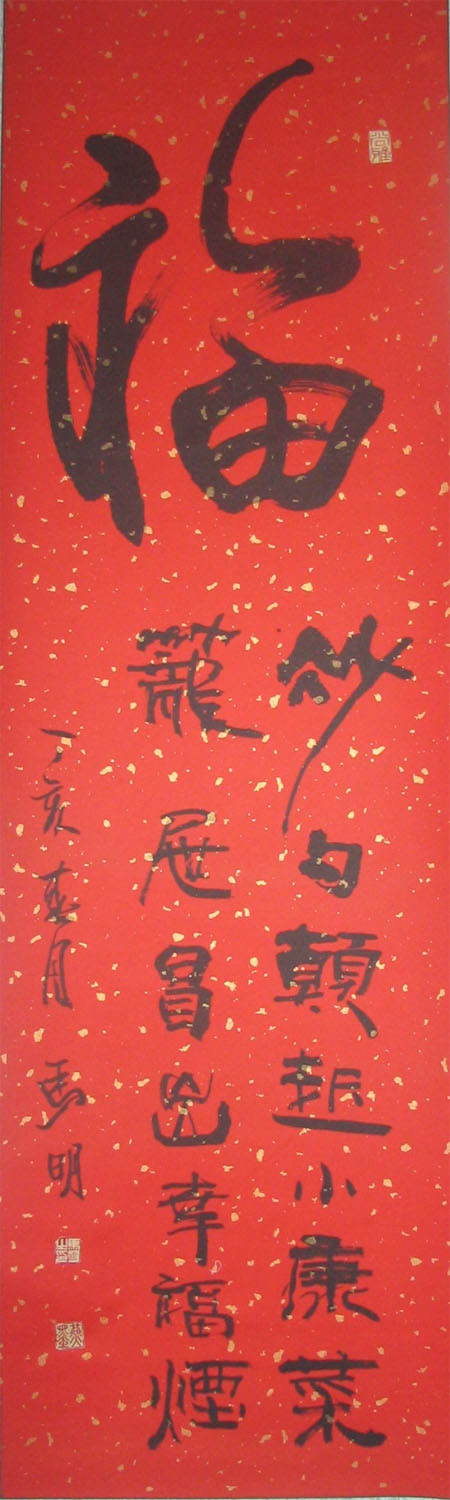 福
炒勺顛起小康菜
籠屉冒出幸福煙
丁亥春月 明